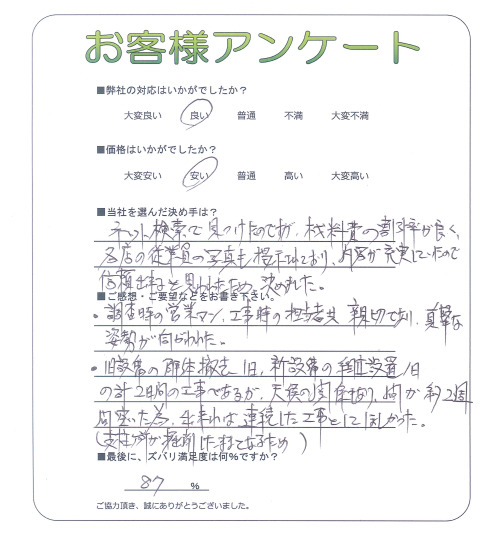 お客様アンケート
■弊社の対応はいかがでしたか?
大変良い 良い 普通 不満 大変不満
■価格はいかがでしたか?
大変安い 安い 普通 高い 大変高い
■当社を選んだ決め手は?
ネット検索で見つけたのですが、材料費の割引率が良く、
各店の従業員の写真も提示されており、内容が充実していたので
信頼出来ると思われたため、決めました。
■ご感想・ご要望などをお書き下さい。
・調査時の営業マン、工事時の担当者共 親切であり、真摯な
姿勢が向がわれた。
・旧設備の解体撤去1日、新設備の組立設置1日
の計2日間の工事であるが、天候の関係もあり、間が約2週
間空いた為、出来れば連続した工事としてほしかった。
(支柱が掘削したままとなるため)
■最後に、ズバリ満足度は何%ですか?
87 %
ご協力頂き、誠にありがとうございました。